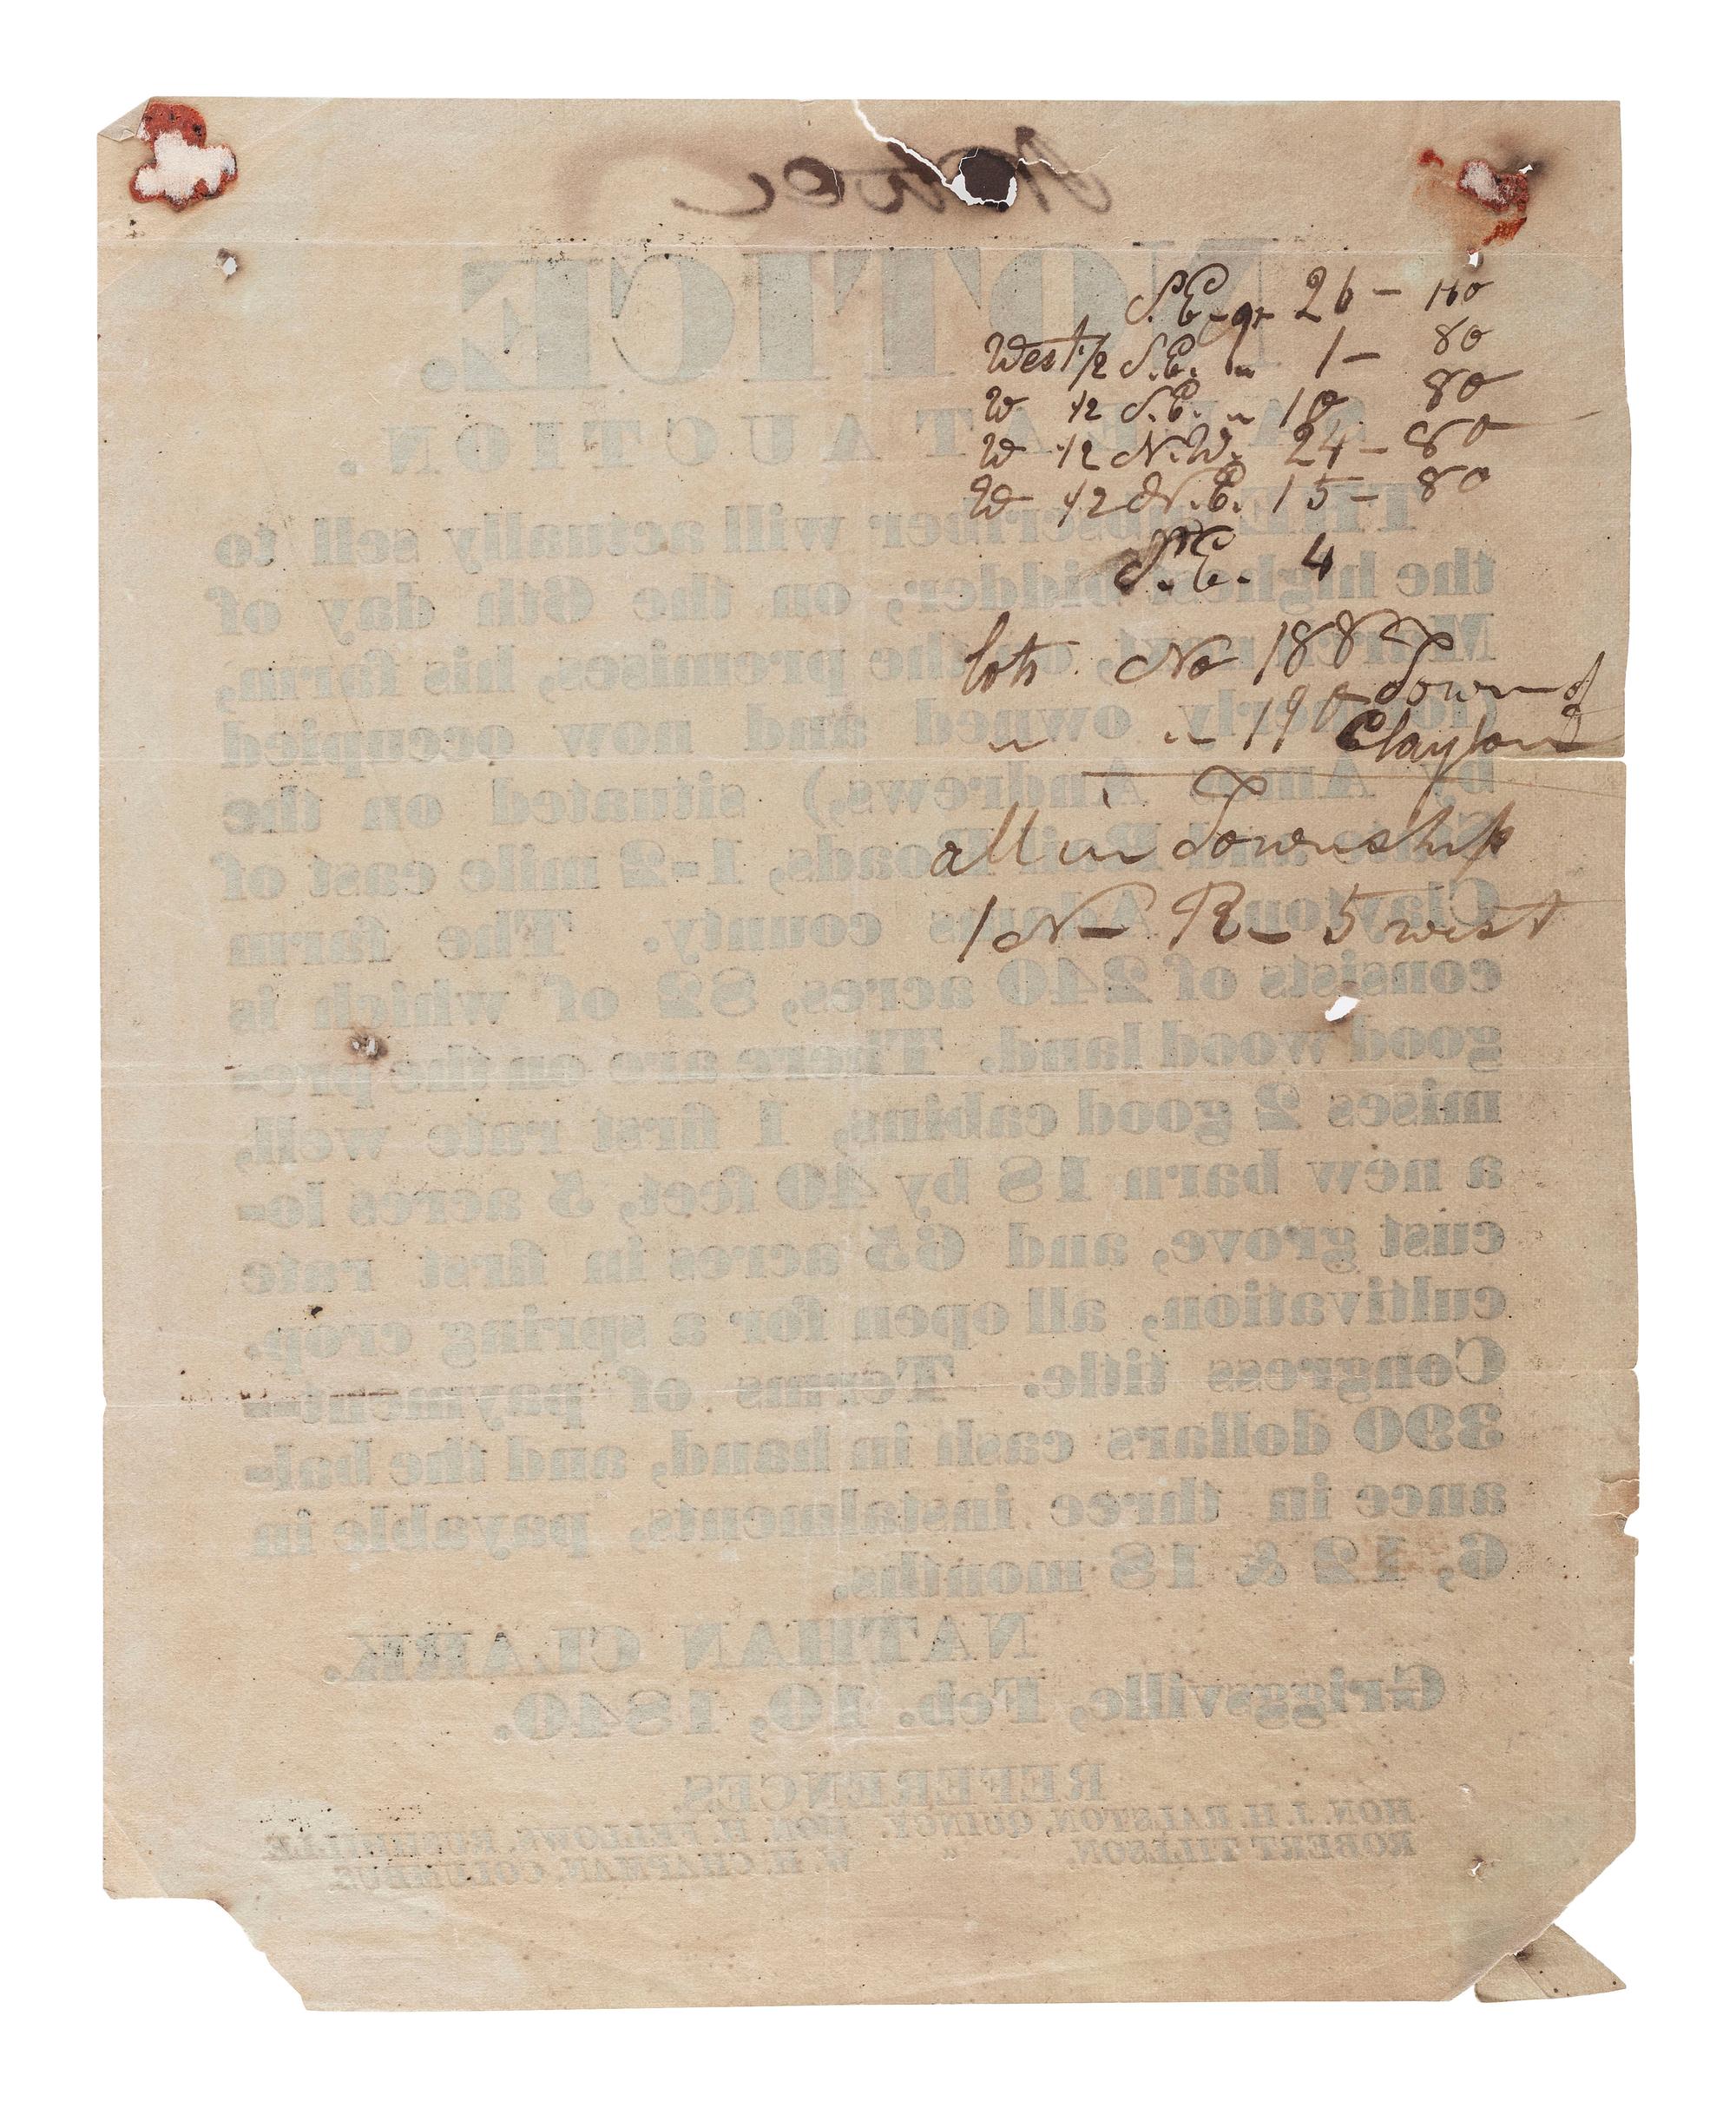 Notice
S.E. qr 26 – 160
West 1/2 S.E. " 1 – 80
W 1/2 S.E. " 10 80
W 1/2 N.W. 24 – 80
W 1/2 N.E. 15 – 80
S.E. 4
lots No 188 Town of
" " 190 Clayton
all in Township
1 N – R – 5 west
NOTICE.
SALE AT AUCTION.
THE subscriber will actually sell to
the highest bidder, on the 6th day of
March next, on the premises, his farm,
(formerly owned and now occupied
by Amos Andrews,) situated on the
State and Rail Roads, 1-2 mile east of
Clayton, Adams county. The farm
consists of 240 acres, 82 of which is
good wood land. There are on the pre-
mises 2 good cabins, 1 first rate well,
a new barn 18 by 40 feet, 5 acres lo-
cust grove, and 65 acres in first rate
cultivation, all open for a spring crop.
Congress title. Terms of payment-
390 dollars cash in hand, and the bal-
ance in three instalments, payable in
6, 12 & 18 months.
NATHAN CLARK.
Griggsville, Feb. 10, 1840.
REFERENCES.
HON. J. H. RALSTON, QUINCY. HON. H. FELLOWS, RUSHVILLE.
ROBERT TILLSON, " W. H. CHAPMAN, COLUMBUS.